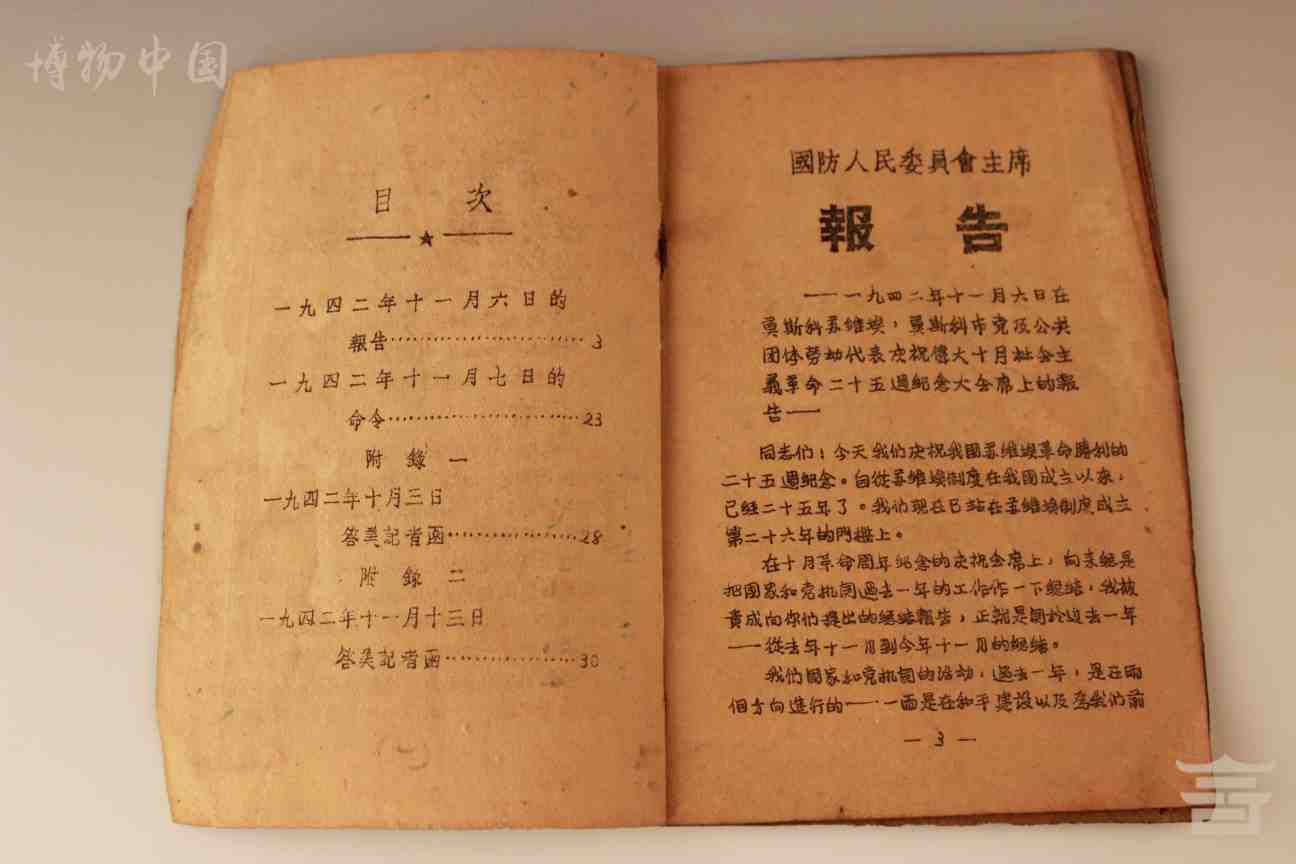 博物中国
目 次
一九四二年十一月六日的
報告……………………3
一九四二年十一月七日的
命令……………………23
附 錄 一
一九四二年十月三日
答美記者函……………28
附 錄 二
一九四二年十一月十三日
答美記者函……………30
國防人民委員會主席
報 告
——一九四二年十一月六日在
莫斯科苏維埃,莫斯科市党及公共
团体劳动代表庆祝偉大十月社会主
義革命二十五週纪念大会席上的報
告——
同志们:今天我们庆祝我國苏維埃革命勝利的
二十五週纪念。自從苏維埃制度在我國成立以來,
已經二十五年了。我们現在已站在苏維埃制度成立
第二十六年的門檻上。
在十月革命周年纪念的庆祝会席上,向來總是
把國家和党机関過去一年的工作作一下總結,我被
責成向你们提出的總結報告,正就是関於过去一年
——從去年十一月到今年十一月的總結。
我们國家和党机関的活动,過去一年,是在兩
個方向進行的——一面是在和平建設以及為我们前
— 3 —